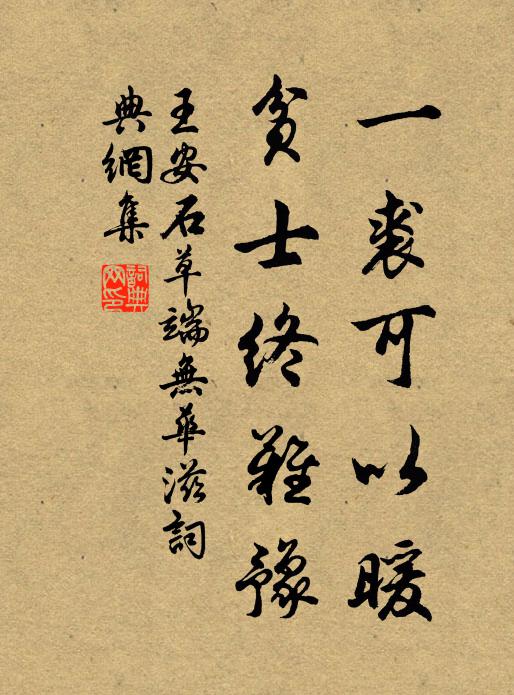 一裘可以暖
貧士終難豫
王安石草端無華滋詞
典網集
詞典網印